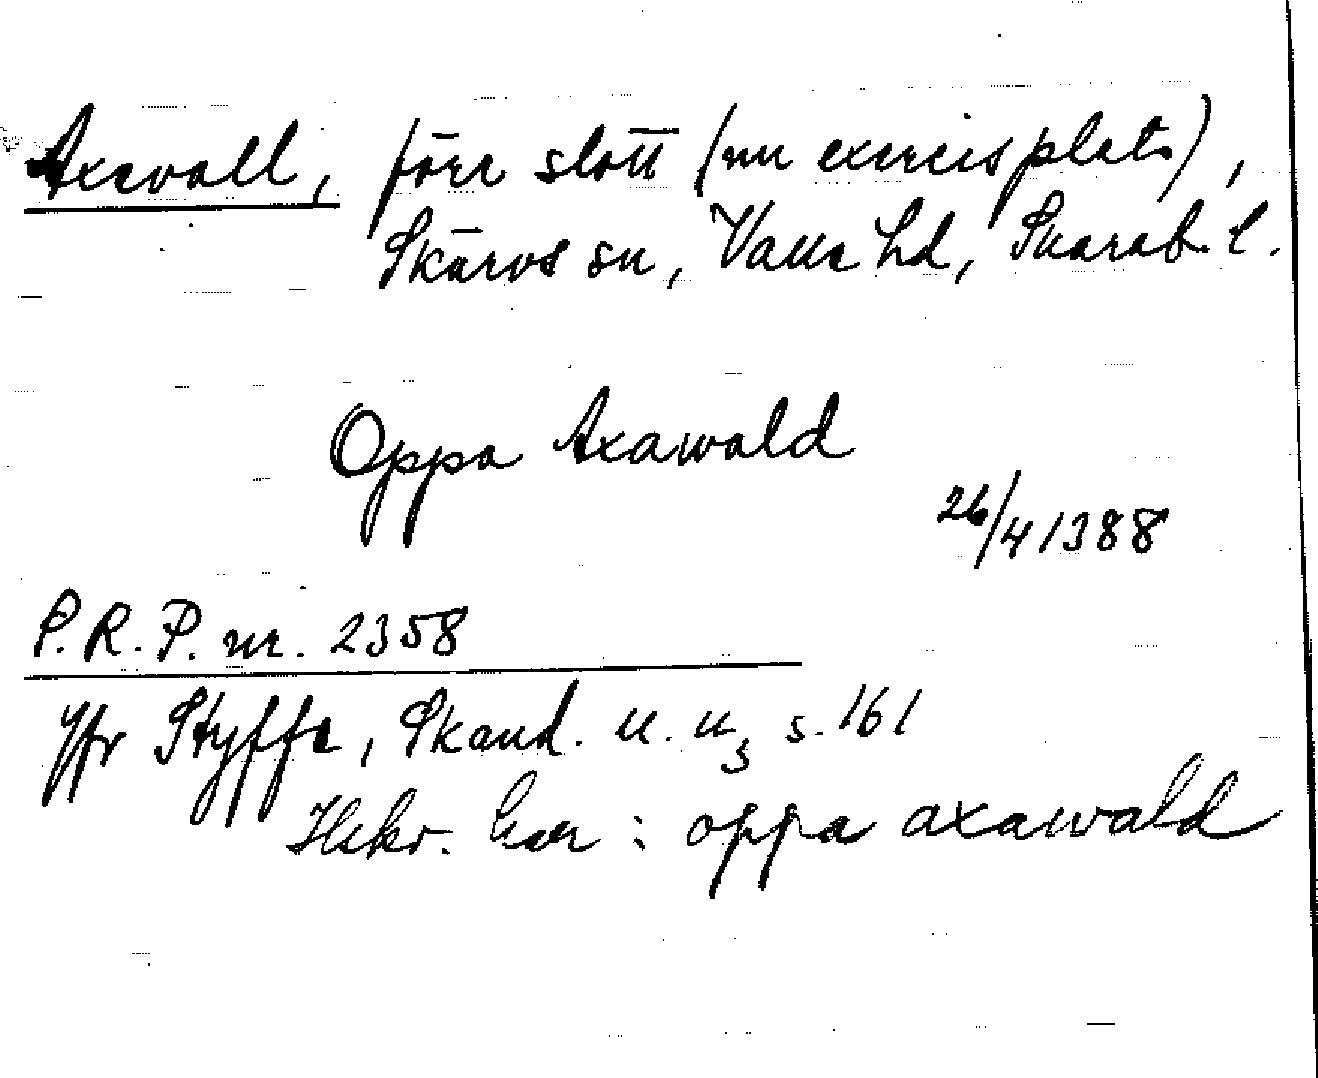 Axevall, förr slott (nu exercisplats),
Skärvs sn, Valle hd, Skarab. l.
Oppa Axawald
26/4 1388
P.R.P. nr. 2358
Jfr Styffe, Skand. u. u3 s. 161
Hskr. har: oppa axawald